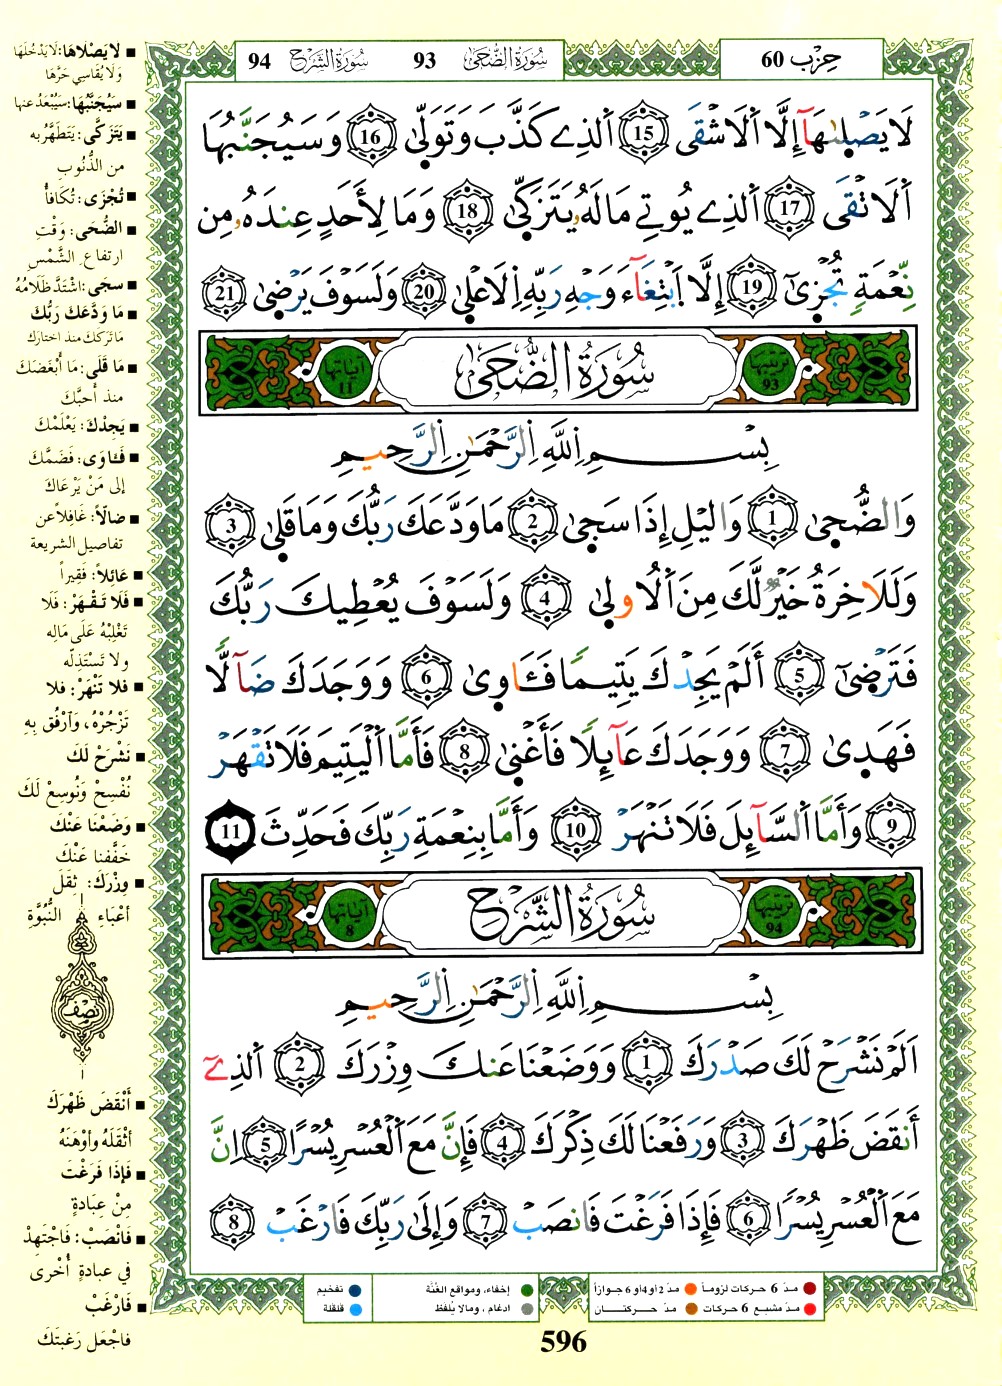 حِزْب 60
سُورَةُ الضُّحَى 93 سُورَةُ الشَّرْحِ 94
لَا يَصْلَىٰهَآ إِلَّا اَلَاشْقَى 15 اَلذِے كَذَّبَ وَتَوَلّٰى 16 وَسَيُجَنَّبُهَا
اَلَاتْقَى 17 اَلذِے يُوتِے مَالَهُۥ يَتَزَكّٰى 18 وَمَا لِأَحَدٍ عِندَهُۥ مِن
نِّعْمَةٍ تُجْزٰىٓ 19 إِلَّا اَبْتِغَآءَ وَجْهِ رَبِّهِ اِلَاعْلٰى 20 وَلَسَوْفَ يَرْضٰى 21
ترتيبها 93 سُورَةُ الضُّحَىٰ آياتها 11
بِسْمِ اِللَّهِ اِلرَّحْمَٰنِ اِلرَّحِيمِ
وَالضُّحٰى 1 وَاليْلِ إِذَا سَجٰى 2 مَا وَدَّعَكَ رَبُّكَ وَمَا قَلٰى 3
وَلَلَاخِرَةُ خَيْرٌ لَّكَ مِنَ اَلُاولٰى 4 وَلَسَوْفَ يُعْطِيكَ رَبُّكَ
فَتَرْضٰىٓ 5 أَلَمْ يَجِدْكَ يَتِيمًا فَـَٔاوٰى 6 وَوَجَدَكَ ضَآلًّا
فَهَدٰى 7 وَوَجَدَكَ عَآئِلًا فَأَغْنٰى 8 فَأَمَّا اَلْيَتِيمَ فَلَا تَقْهَرْ
9 وَأَمَّا اَلسَّآئِلَ فَلَا تَنْهَرْ 10 وَأَمَّا بِنِعْمَةِ رَبِّكَ فَحَدِّثْ 11
ترتيبها 94 سُورَةُ الشَّرْحِ آياتها 8
بِسْمِ اِللَّهِ اِلرَّحْمَٰنِ اِلرَّحِيمِ
أَلَمْ نَشْرَحْ لَكَ صَدْرَكَ 1 وَوَضَعْنَا عَنكَ وِزْرَكَ 2 اَلذِےٓ
أَنقَضَ ظَهْرَكَ 3 وَرَفَعْنَا لَكَ ذِكْرَكَ 4 فَإِنَّ مَعَ اَلْعُسْرِ يُسْرًا 5 إِنَّ
مَعَ اَلْعُسْرِ يُسْرًا 6 فَإِذَا فَرَغْتَ فَانصَبْ 7 وَإِلَىٰ رَبِّكَ فَارْغَب 8
لَا يَصْلَاهَا: لَا يَدْخُلُهَا
وَلَا يُقَاسِي حَرَّهَا
سَيُجَنَّبُهَا: سَيُبْعَدُ عنها
يَتَزَكَّى: يَتَطَهَّرُ به
من الذُّنُوبِ
تُجْزَى: تُكَافَأُ
الضُّحَى: وَقْتِ
ارتفاع الشَّمْسِ
سَجَى: اشْتَدَّ ظَلَامُهُ
مَا وَدَّعَكَ رَبُّكَ
مَا تَرَكَكَ منذ اختارك
مَا قَلَى: مَا أَبْغَضَكَ
منذ أَحبَّكَ
يَجِدْكَ: يَعْلَمْكَ
فَـَاوَى: فَضَمَّكَ
إلى مَنْ يَرْعَاكَ
ضَالًا: غَافِلًا عن
تفاصيل الشريعة
عَائِلًا: فَقِيراً
فَلَا تَقْهَرْ: فَلَا
تَغْلِبْهُ عَلَى مَالِهِ
ولا تَسْتَذِلَّه
فَلا تَنْهَرْ: فلا
تَزْجُرْهُ، وَارْفُق بِهِ
نَشْرَحْ لَكَ
نُفْسِحْ وَنُوسِعْ لَكَ
وَضَعْنَا عَنْكَ
خَفَّفنا عَنْكَ
وِزْرَكَ: ثِقَلَ
أَعْبَاءِ النُّبُوَّةِ
نِصْف
أَنْقَضَ ظَهْرَكَ
أَثْقَلَهُ وأَوْهَنَهُ
فَإِذَا فَرَغْتَ
مِنْ عِبَادَةٍ
فَانْصَبْ: فَاجْتَهِدْ
في عبادةٍ أُخْرى
فَارْغَبْ
فاجْعَل رَغبَتَكَ
مدّ 6 حركات لزوماً مدّ 2 أو 4 أو 6 جوازاً إخفاء، ومواقع الغُنَّة تفخيم
مدّ مشبع 6 حركات مدّ حركتان ادغام، ومالا يُلفظ قلقلة
596